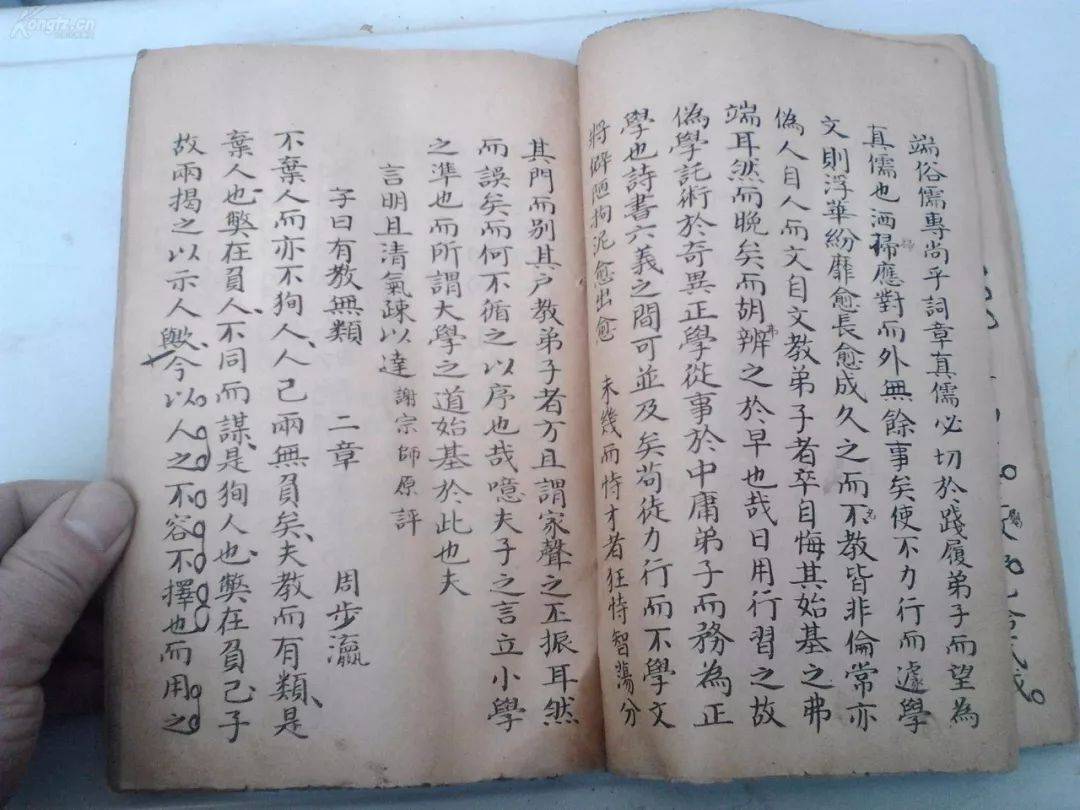 端俗儒專尚乎詞章真儒必切於踐履弟子而望為
真儒也洒掃應對而外無餘事矣使不力行而遽學
文則浮華紛靡愈長愈成久之而不教皆非倫常亦
偽人自人而文自文教弟子者卒自悔其始基之弗
端耳然而晚矣而胡弗辨之於早也哉日用行習之故
偽學託術於奇異正學從事於中庸弟子而務為正
學也詩書六義之間可並及矣苟徒力行而不學文
將僻陋拘泥愈出愈 未幾而恃才者狂恃智蕩分
其門而別其戶教弟子者方且謂家聲之丕振耳然
而誤矣而何不循之以序也哉噫夫子之言立小學
之準也而所謂大學之道始基於此也夫
言明且清氣疎以達 謝宗師原評
子曰有教無類 二章 周步瀛
不棄人而亦不狥人人己兩無負矣夫教而有類是
棄人也弊在負人不同而謀是狥人也弊在負己子
故兩揭之以示人與今以人之不容不擇也而用之
Kongfz.cn